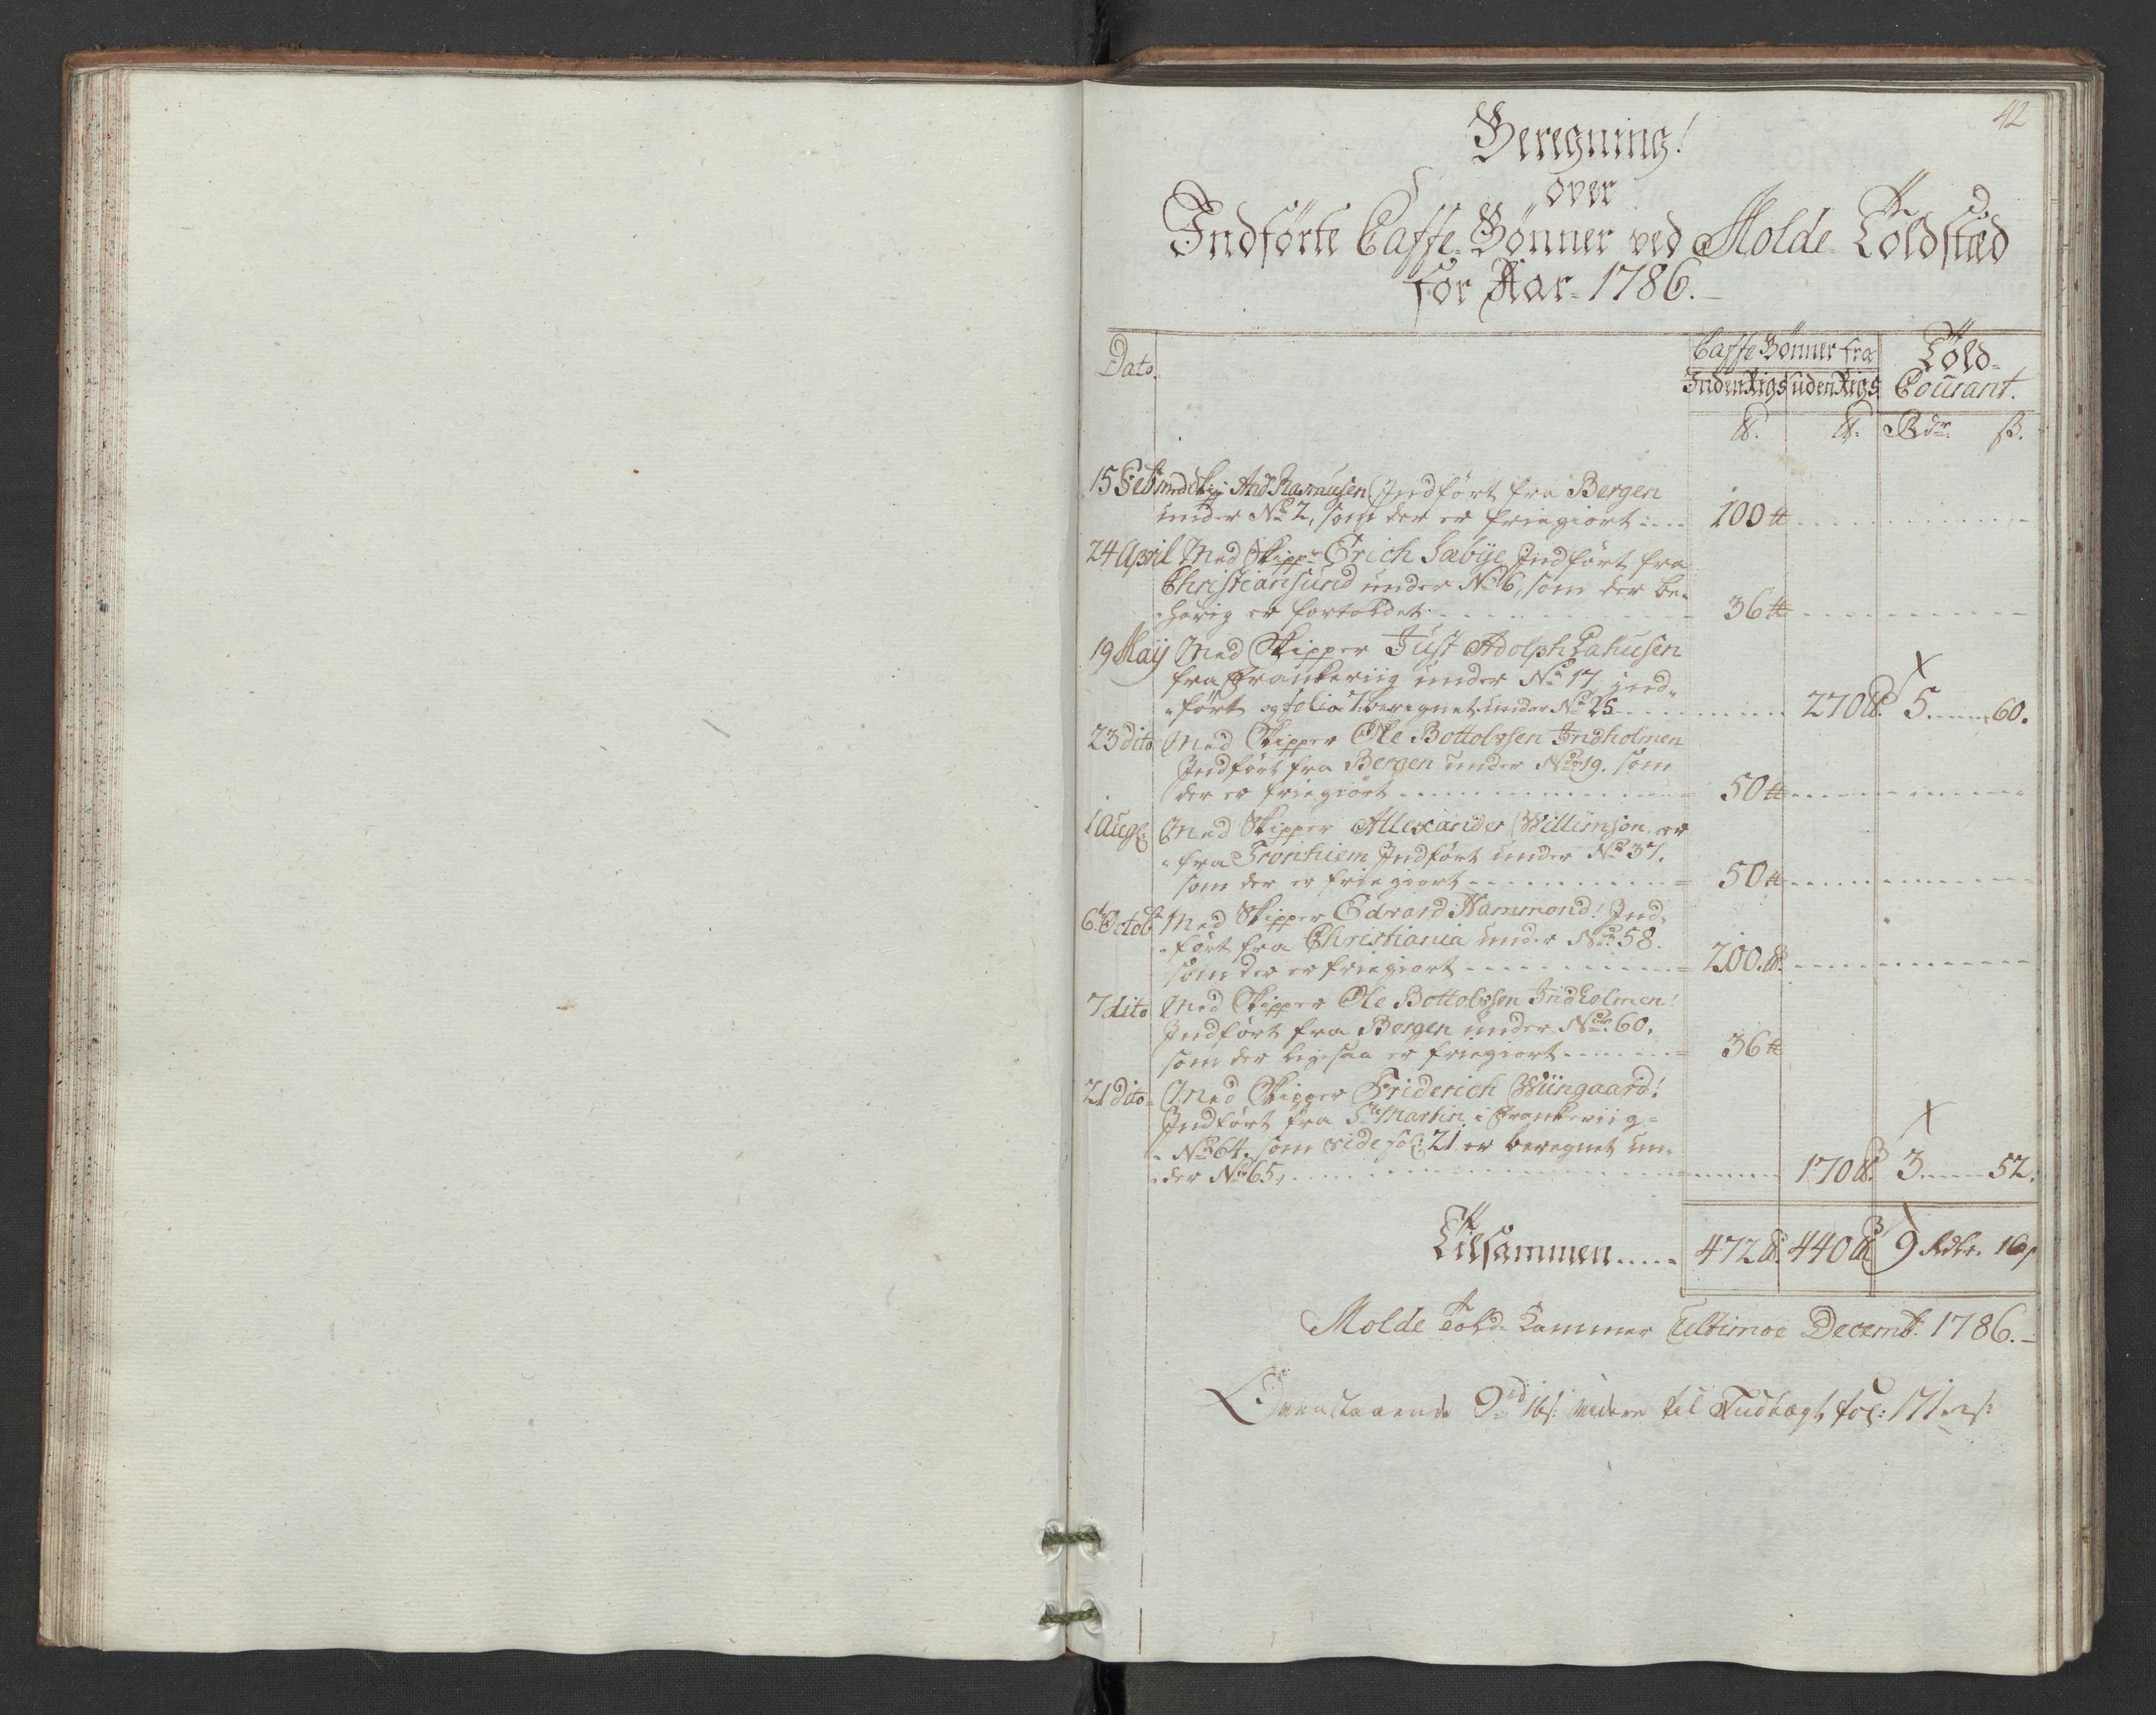 42
Beregning!
over
Indførte Caffe-Bønner ved Molde Toldstæd
for Aar 1786.
Dato.
Caffe Bønner fra
Inden Rigs uden Rigs
Told-
Courant.
℔. ℔. Rdr. ß.
15 Febr med Skip And Rasmusen Indført fra Bergen
under No 2, som der er friegiort 100 ℔
24 April Med Skippr Erich Sæbÿe Indført fra
Christiansund under No 6, som der be-
hørig er fortoldet 36 ℔
19 Maÿ Med Skipper Just Adolph Lahusen
fra Frankeriig under No 17 ind-
ført og folio 7 beregnet under No 25 270 ℔. 5 60.
23 dito Med Skipper Ole Bottolvsen Indholmen
Indført fra Bergen under No 19. som
der er friegiort 50 ℔
1 Aug: Med Skipper Allexander Willimson er
fra Tronhiem Indført under No 37.
som der er friegiort 50 ℔
6t Octobr Med Skipper Edvard Hammond! Ind-
ført fra Christiania under No 58.
som der er friegiort 200. ℔.
7 dito Med Skipper Ole Bottolvsen Indholmen!
Indført fra Bergen under No 60.
som der ligesaa er friegiort 36 ℔
21 dito Med Skipper Friderich Wiingaard!
Indført fra St Martin i Frankeriig
No 64. som side fol: 21 er beregnet un-
der No 65, 170 ℔. 3 52.
Tilsammen 472 ℔. 440 ℔ 9 Rdlr. 16 ß
Molde Told Kammer Ultimoe Decembr: 1786.
Ovenstaaende 9 rd 16 ß: videre til Indtægt fol: 171